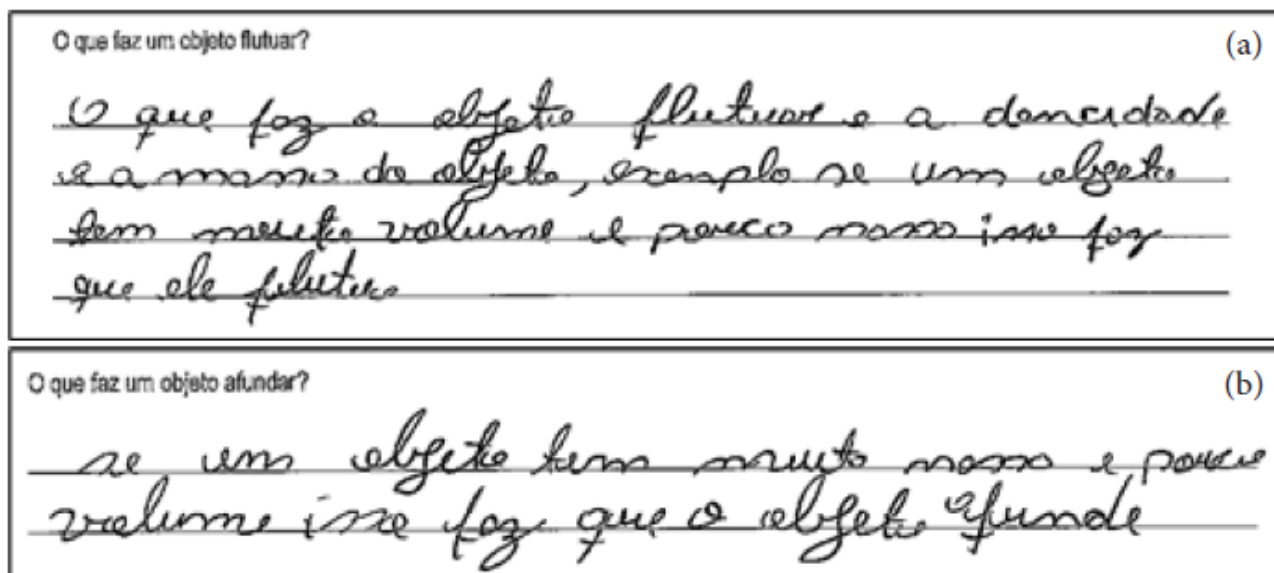 O que faz um objeto flutuar?
(a)
O que faz o objeto flutuar e a dencidade
e a massa do objeto, exemplo se um objeto
tem muito volume e pouco massa isso faz
que ele flutua
O que faz um objeto afundar?
(b)
se um objeto tem muito massa e pouco
volume isso faz que o objeto afunde